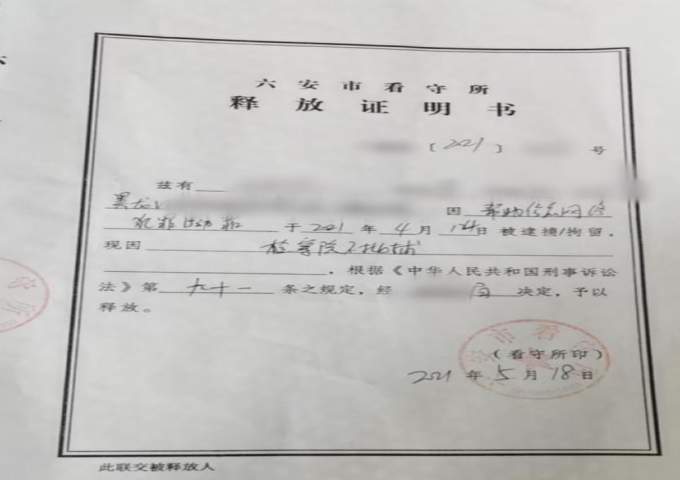 六安市看守所
释放证明书
〔2021〕 号
兹有
黑龙 因 帮助信息网络
犯罪活动罪 于 2021 年 4 月 14日 被逮捕/拘留，
现因 检察院不批捕
，根据《中华人民共和国刑事诉讼
法》第 九十一 条之规定，经 局 决定，予以
释放。
（看守所印）
2021 年 5 月 18 日
此联交被释放人